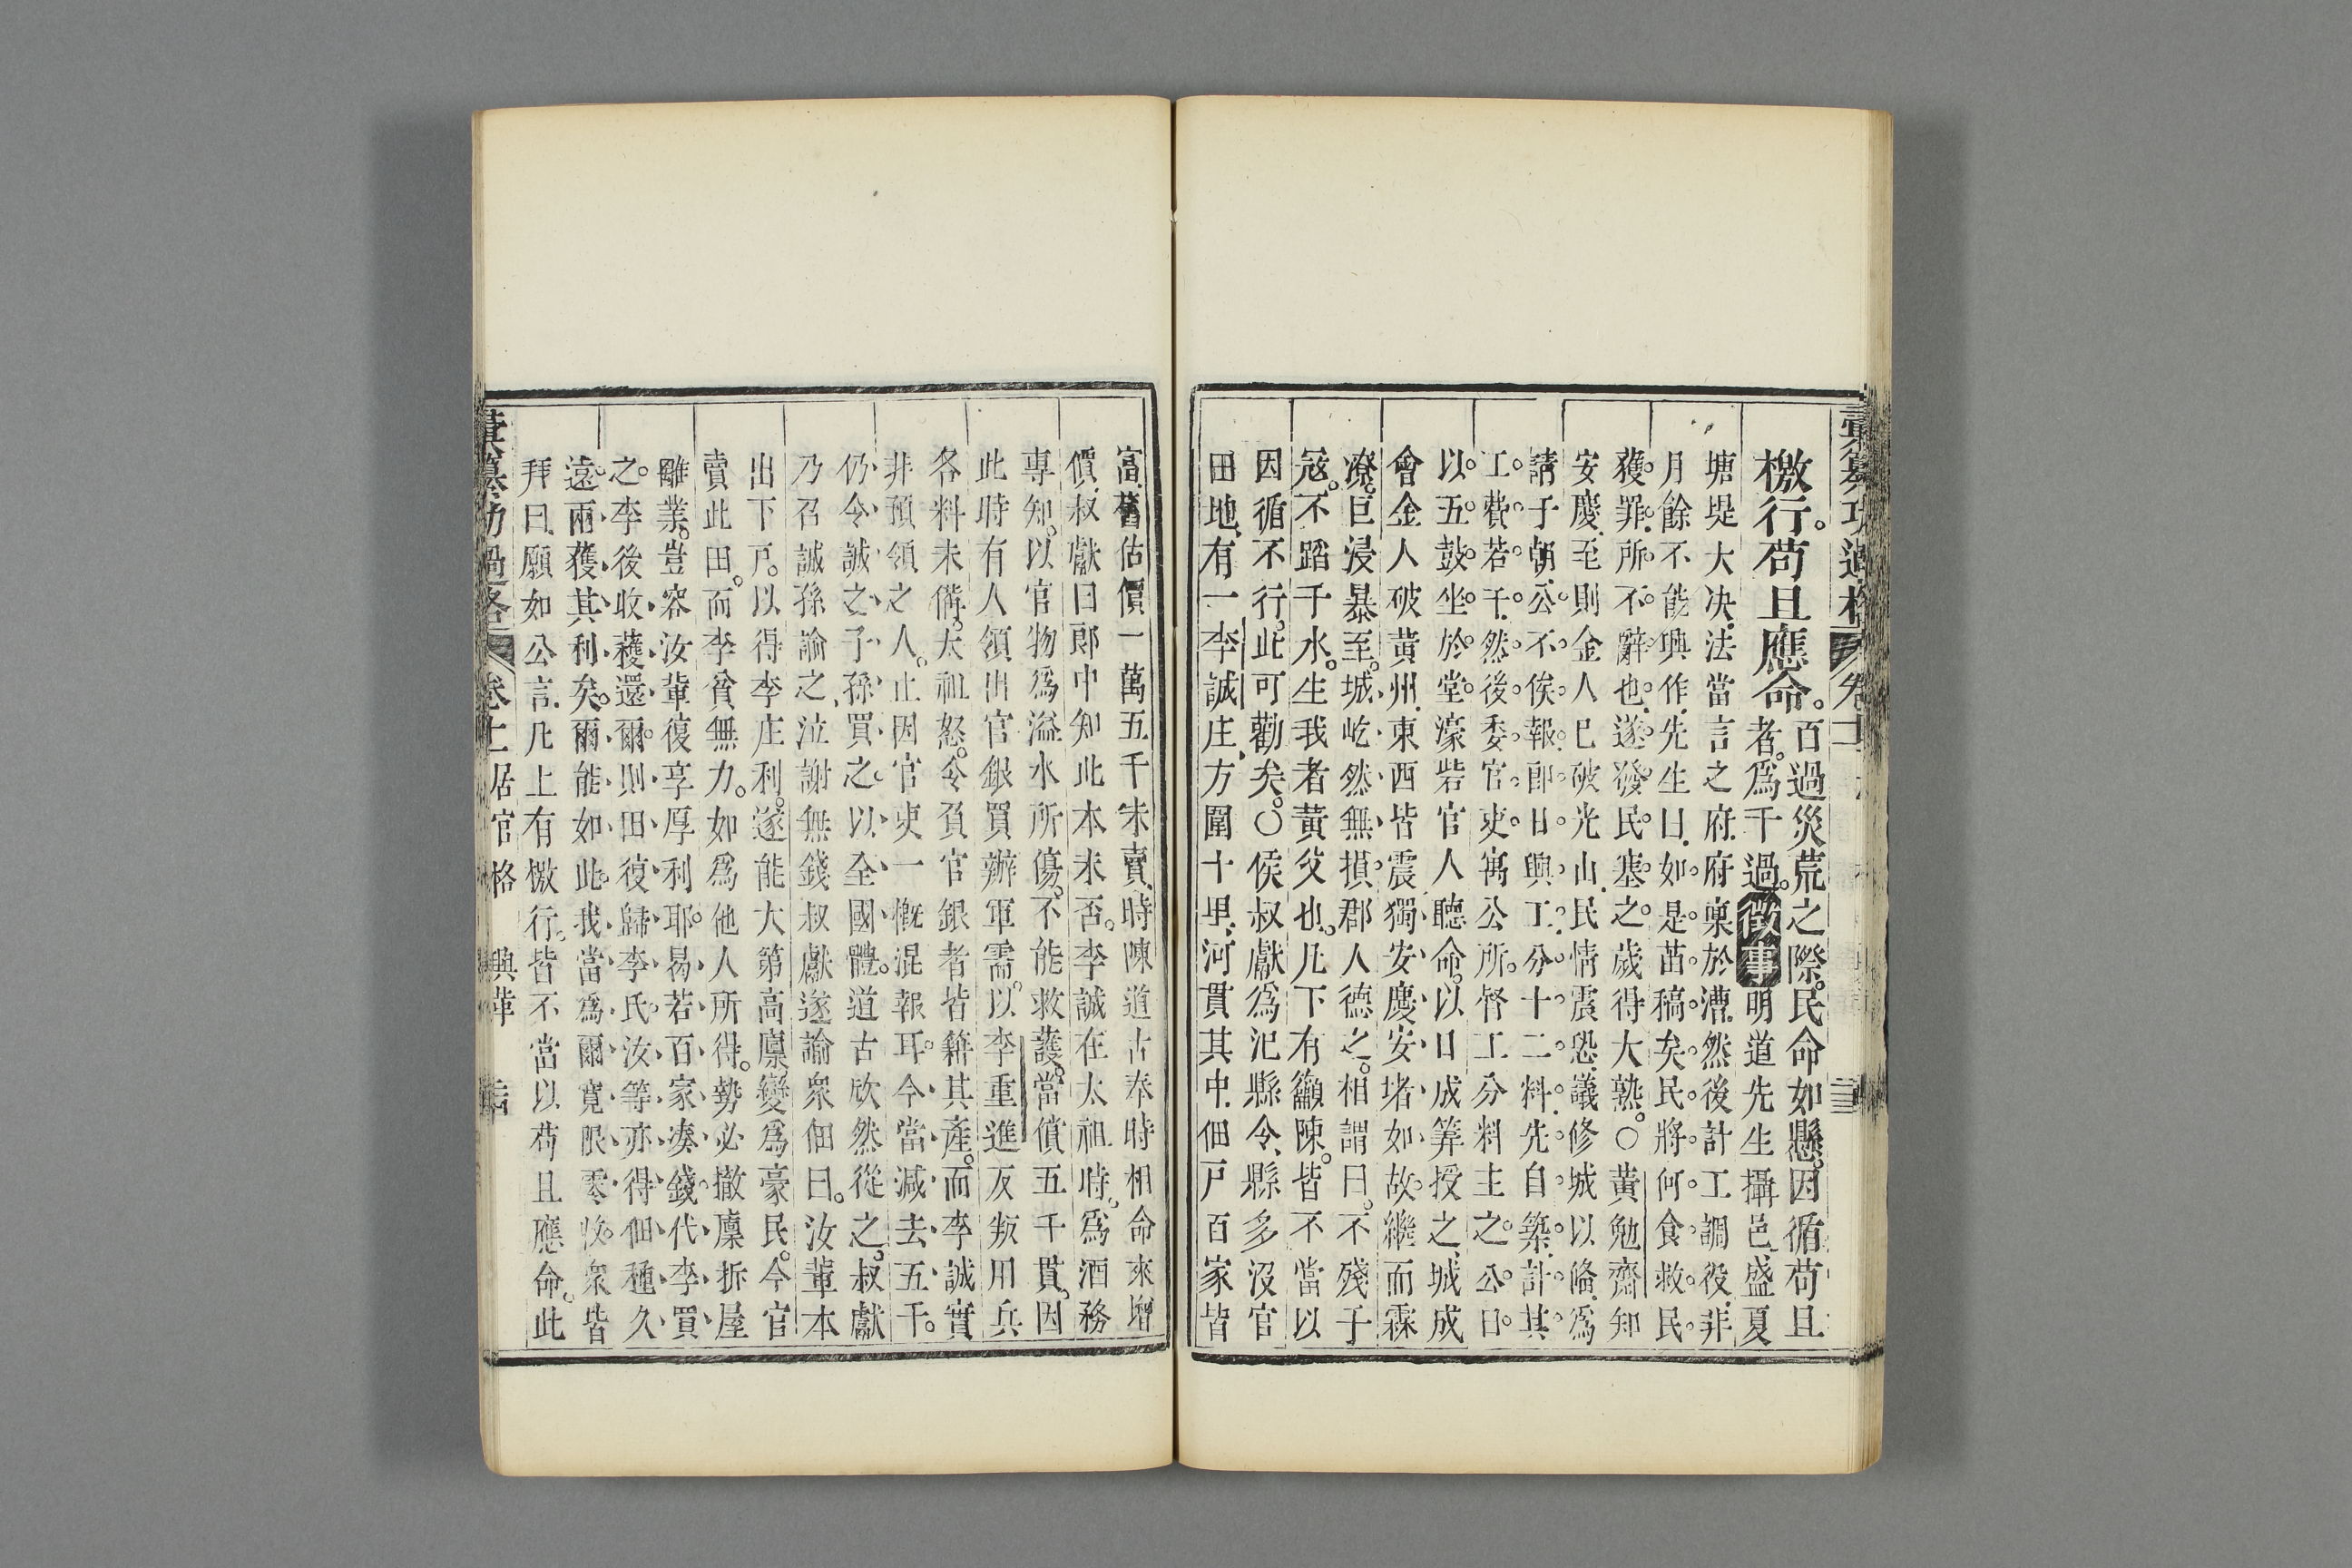 彙纂功過格 卷十一
檄行。苟且應命。百過災荒之際。民命如懸。因循苟且
者。爲千過。徵事明道先生攝邑。盛夏
塘堤大决。法當言之府。府稟於漕。然後計工調役。非
月餘不能興作。先生曰。如是苗稿矣。民將何食。救民
獲罪。所不辭也。遂發民塞之。歲得大熟。○黃勉齋知
安慶。至則金人已破光山。民情震恐。議修城以俻。爲
請于朝。公不俟報。即日興工。分十二料。先自築。計其
工費若干。然後委官吏寓公所。督工分料主之。公日
以五鼓坐於堂。濠砦官人聽命。以日成筭授之。城成
會金人破黃州。東西皆震。獨安慶安堵如故。繼而霖
潦。巨浸暴至。城屹然無損。郡人德之。相謂曰。不殘于
寇。不蹈于水。生我者黃父也。凡下有籲陳。皆不當以
因循不行。此可勸矣。○侯叔獻爲汜縣令。縣多沒官
田地。有一李誠庄。方圍十里。河貫其中。佃戶百家皆
富。舊估價一萬五千未賣。時陳道古奉時相命來增
價。叔獻曰郎中知此本末否。李誠在太祖時。爲酒務
專知。以官物爲溢水所傷。不能救護。當償五千貫。因
此時有人領出官銀買辦軍需。以李重進反叛用兵
各料未備。太祖怒。令負官銀者皆籍其產。而李誠實
非預領之人。止因官吏一概混報耳。今當減去五千。
仍令誠之子孫買之。以全國體。道古欣然從之。叔獻
乃召誠孫諭之。泣謝無錢。叔獻遂諭衆佃曰。汝輩本
出下戶。以得李庄利。遂能大第高廩。變爲豪民。今官
賣此田。而李貧無力。如爲他人所得。勢必撤廩折屋
離業。豈容汝輩復享厚利耶。易若百家凑錢。代李買
之。李後收穫還爾。則田復歸李氏。汝等亦得佃種久
遠。兩獲其利矣。爾能如此。我當爲爾寬限零收。衆皆
拜曰。願如公言。凡上有檄行。皆不當以苟且應命。此
彙纂功過格 卷十一 居官格 興革